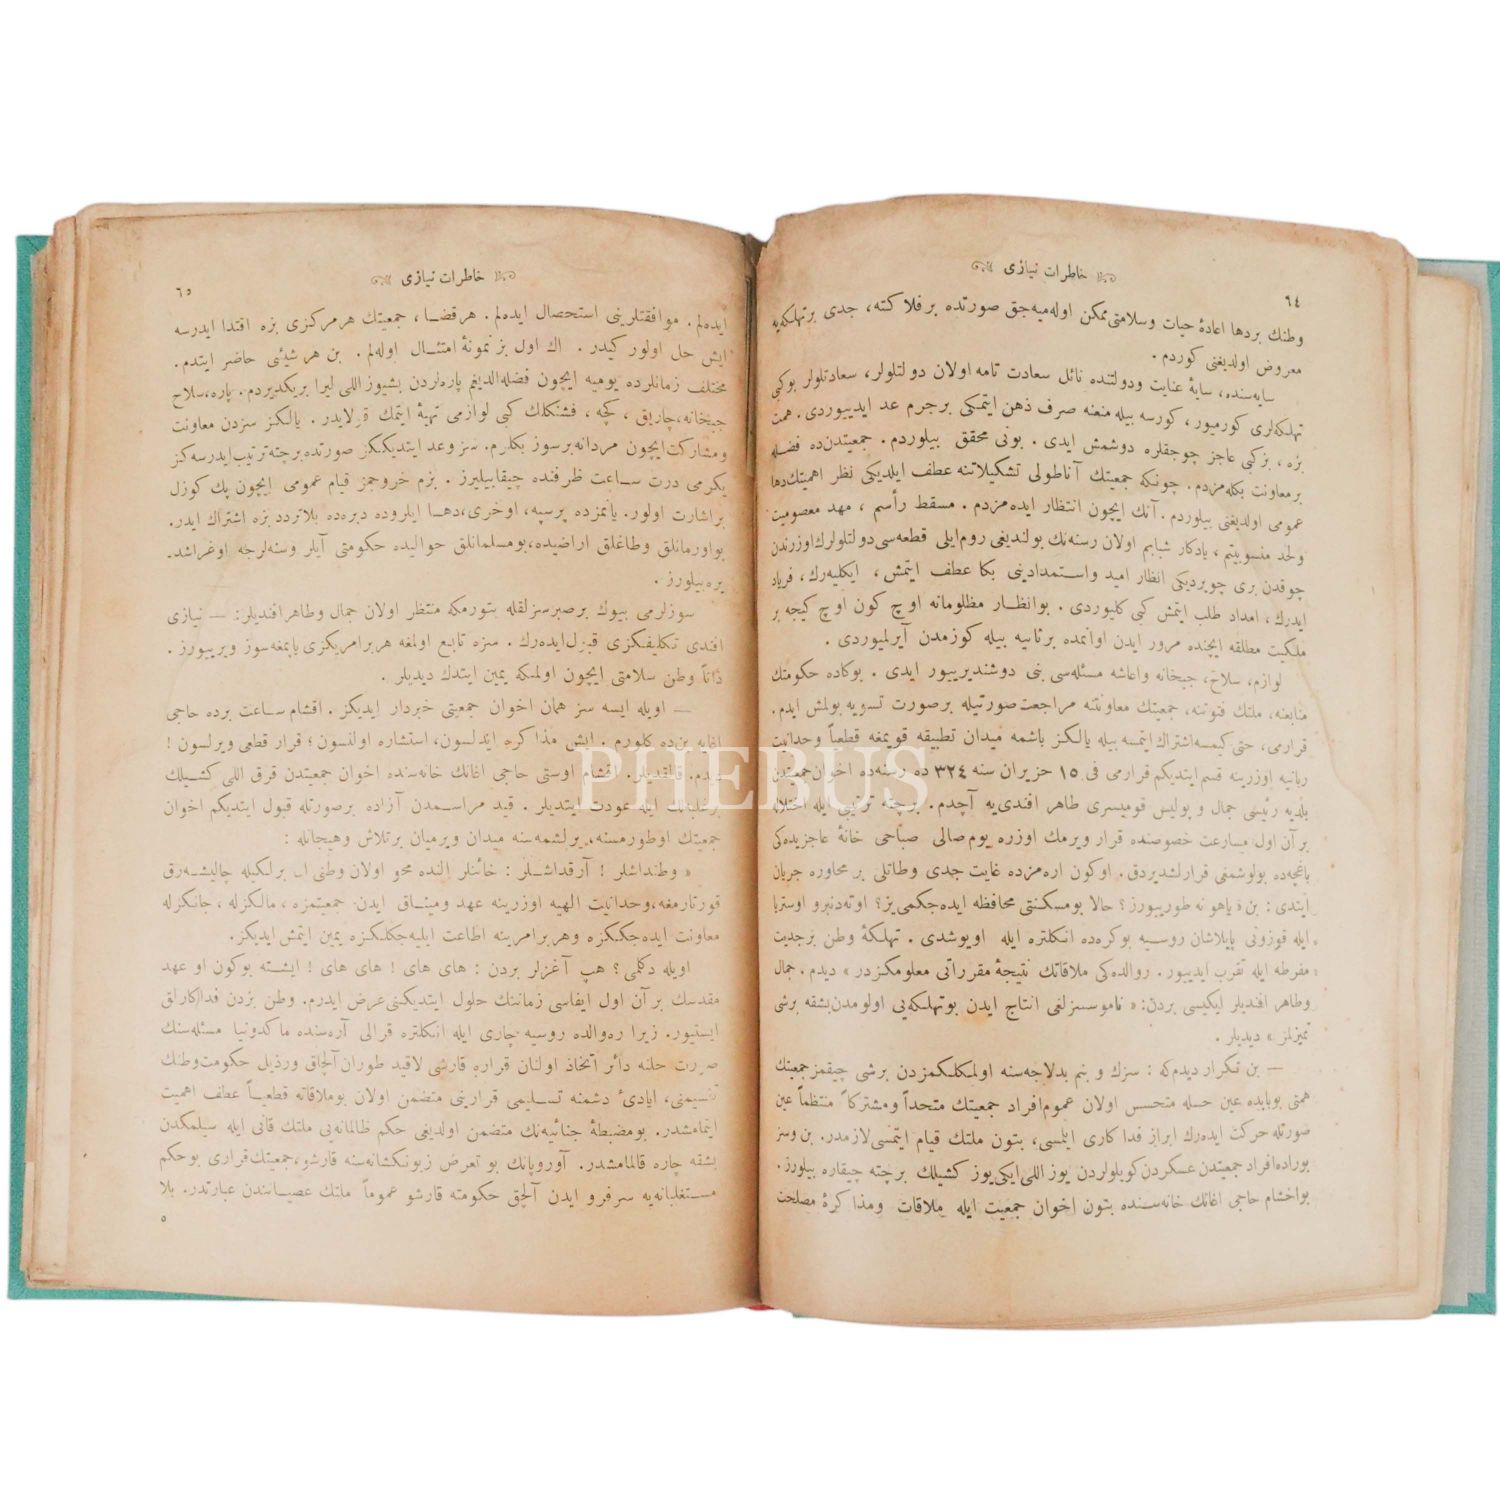 خاطرات نیازی
٦٤
وطنك بردها اعادهٔ حیات وسلامتی ممكن اوله‌میه‌جق صورتده برفلاكته، جدی برتهلكه‌یه
معروض اولدیغنی كوردم .
سایه‌سنده، سایهٔ عنایت ودولتنده نائل سعادت تامه اولان دولتلولر، سعادتلولر بوكبی
تهلكه‌لری كورمیور، كورسه بیله منعنه صرف ذهن ایتمكی برجرم عد ایدییوردی. همت
بزه ، بزكبی عاجز چوجقلره دوشمش ایدی . بونی محقق بیلوردم . جمعیتدن‌ده فضله
برمعاونت بكله‌مزدم. چونكه جمعیتك آناطولی تشكیلاتنه عطف ایلدیكی نظر اهمیتك‌دها
عمومی اولدیغنی بیلوردم . آنك ایچون انتظار ایده‌مزدم . مسقط رأسم ، مهد معصومیت
ولحد منسوبیتم ، یادكار شبابم اولان رسنه‌نك بولندیغی روم‌ایلی قطعه‌سی‌دولتلولرك‌اوزرندن
چوقدن بری چویردیكی انظار امید واستمدادینی بكا عطف ایتمش ، ایكلیه‌رك، فریاد
ایدرك ، امداد طلب ایتمش كبی كلیوردی . بوانظار مظلومانه اوچ كون اوچ كیجه بر
ملكیت مطلقه ایچنده مرور ایدن اوانمده برثانیه بیله كوزمدن آیرلمیوردی .
لوازم، سلاح، جبخانه واعاشه مسئله‌سی بنی دوشندیرییور ایدی . بوكاده حكومتك
منابعنه، ملتك فتوتنه، جمعیتك معاونتنه مراجعت‌صورتیله برصورت تسویه بولمش ایدم.
قرارمی، حتی كیمسه‌اشتراك‌ایتمسه بیله یالكز باشمه میدان تطبیقه قویمغه قطعاً وحدانیت
ربانیه اوزرینه قسم ایتدیكم قرارمی فی ١٥ حزیران سنه ٣٢٤ ده رسنه‌ده اخوان‌جمعیتدن
بلدیه رئیسی جمال و پولیس قومیسری طاهر افندی‌یه آچدم . برچته ترتیبی ایله اختلاله
بر آن اول مسارعت خصوصنده قرار ویرمك اوزره یوم‌صالی صباحی خانهٔ عاجزیده‌كی
باغچه‌ده بولوشمغی قرارلشدیردق. اوكون اره‌مزده غایت جدی وطاتلی بر محاوره جریان
ایتدی : بن‌ه یاهو نه طورییورز؟ حالا بومسكنتی محافظه ایده‌جكمی‌یز؟ اوته‌دنبرو اوستریا
ایله قوزونی پایلاشان روسیه بوكره‌ده انكلتره ایله اویوشدی . تهلكهٔ وطن برجدیت
مفرطه ایله تقرب ایدییور . روالده‌كی ملاقاتك نتیجهٔ مقرراتی معلومكزدر » دیدم . جمال
وطاهر افندیلر ایكیسی بردن: « ناموسسزلغی انتاج ایدن بوتهلكه‌یی اولومدن‌بشقه برشی
تمیزلمز » دیدیلر .
— بن تكرار دیدم‌كه : سزك و بنم یدلاجه‌سنه اولمكلكمزدن برشی چیقمز جمعیتك
همتی بوبابده عین حسله متحسس اولان عموم‌افراد جمعیتك متحداً ومشتركاً منتظماً عین
صورتله حركت ایده‌رك ابراز فداكاری ایلمسی، بتون ملتك قیام ایتمسی‌لازمدر. بن وسز
بوراده‌افراد جمعیتدن عسكردن كویلولردن یوز اللی‌ایكی‌یوز كشیلك برچته چیقاره بیلورز .
بواخشام حاجی اغانك خانه‌سنده بتون اخوان جمعیت ایله ملاقات ومذاكرهٔ مصلحت
خاطرات نیازی
٦٥
ایده‌لم . موافقتلرینی استحصال ایده‌لم . هرقضا ، جمعیتك هرمركزی بزه اقتدا ایدرسه
ایش حل اولور كیدر . اك اول بز نمونهٔ امتثال اوله‌لم . بن هرشیئی حاضر ایتدم .
مختلف زمانلرده یومیه ایچون فضله‌الدیغم پاره‌لردن بشیوز اللی لیرا بریكدیردم . پاره،سلاح
جبخانه،چاریق ، كچه ، فشنكلك كبی لوازمی تهیهٔ ایتمك قولایدر . یالكز سزدن معاونت
ومشاركت‌ایچون مردانه‌برسوز بكلرم. سز وعد ایتدیككز صورتده برچته‌ترتیب‌ایدرسه‌كز
یكرمی درت ساعت ظرفنده چیقابیلیرز . بزم خروجمز قیام عمومی ایچون پك كوزل
براشارت اولور. یانمزده پرسپه، اوخری،دها ایلروده دبره‌ده بلاتردد بزه اشتراك ایدر.
بواورمانلق وطاغلق اراضیده،بومسلمانلق حوالیده حكومتی آیلر وسنه‌لرجه اوغراشدیـ
یره‌بیلورز .
سوزلرمی بیوك برصبرسزلقله بتورمكه منتظر اولان جمال وطاهرافندیلر: — نیازی
افندی تكلیفكزی قبول‌ایده‌رك . سزه تابع اولمغه هربرامریكزی یاپمغه سوز ویرییورز .
ذاتاً وطن سلامتی ایچون اولمكه یمین ایتدك دیدیلر .
— اویله ایسه سز همان اخوان جمعیتی خبردار ایدیكز . اقشام ساعت برده حاجی
اغایه بن‌ده كلورم . ایش مذاكره ایدلسون، استشاره اولنسون ؛ قرار قطعی ویرلسون !
دیدم. قالقدیلر. اقشام اوستی حاجی اغانك خانه‌سنده اخوان جمعیتدن قرق اللی كشیلك
برغلبه‌لك ایله عودت ایتدیلر . قید مراسمدن آزاده برصورتله قبول ایتدیكم اخوان
جمعیتك اوطورمسنه، یرلشمه‌سنه میدان ویرمیان برتلاش وهیجانله :
« وطنداشلر ! آرقداشلر : خائنلر النده محو اولان وطنی ال برلكیله چالیشه‌رق
قورتارمغه،وحدانیت الهیه اوزرینه عهد ومیثاق ایدن جمعیتمزه ، مالكزله ، جانكزله
معاونت ایده‌جككزه وهربرامرینه اطاعت ایلیه‌جككزه یمین ایتمش‌ایدیكز.
اویله دكلمی؟ هپ آغزلر بردن : های های ! های های ! ایشته بوكون او عهد
مقدسك بر آن اول ایفاسی زمانتك حلول ایتدیكنی‌عرض ایدرم. وطن بزدن فداكارلق
ایستیور. زیرا ره‌والده روسیه چاری ایله انكلتره قرالی آره‌سنده ماكدونیا مسئله‌سنك
صورت حلنه دائر اتخاذ اولنان قراره قارشی لاقید طوران آلچاق ورذیل حكومت‌وطنك
تقسیمنی، ایادیٔ دشمنه تسلیمی قرارینی متضمن اولان بوملاقاته قطعیاً عطف اهمیت
ایتمامشدر. بومضبطهٔ جنائیه‌نك متضمن اولدیغی حكم ظالمانه‌یی ملتك قانی ایله سیلمكدن
بشقه چاره قالمامشدر. آوروپانك بو تعرض زبونكشانه‌سنه قارشو،جمعیتك‌قراری بوحكم
متغلبانه‌یه سرفرو ایدن آلچق حكومته قارشو عموماً ملتك عصیانندن عبارتدر. بلا
٥
PHEBUS